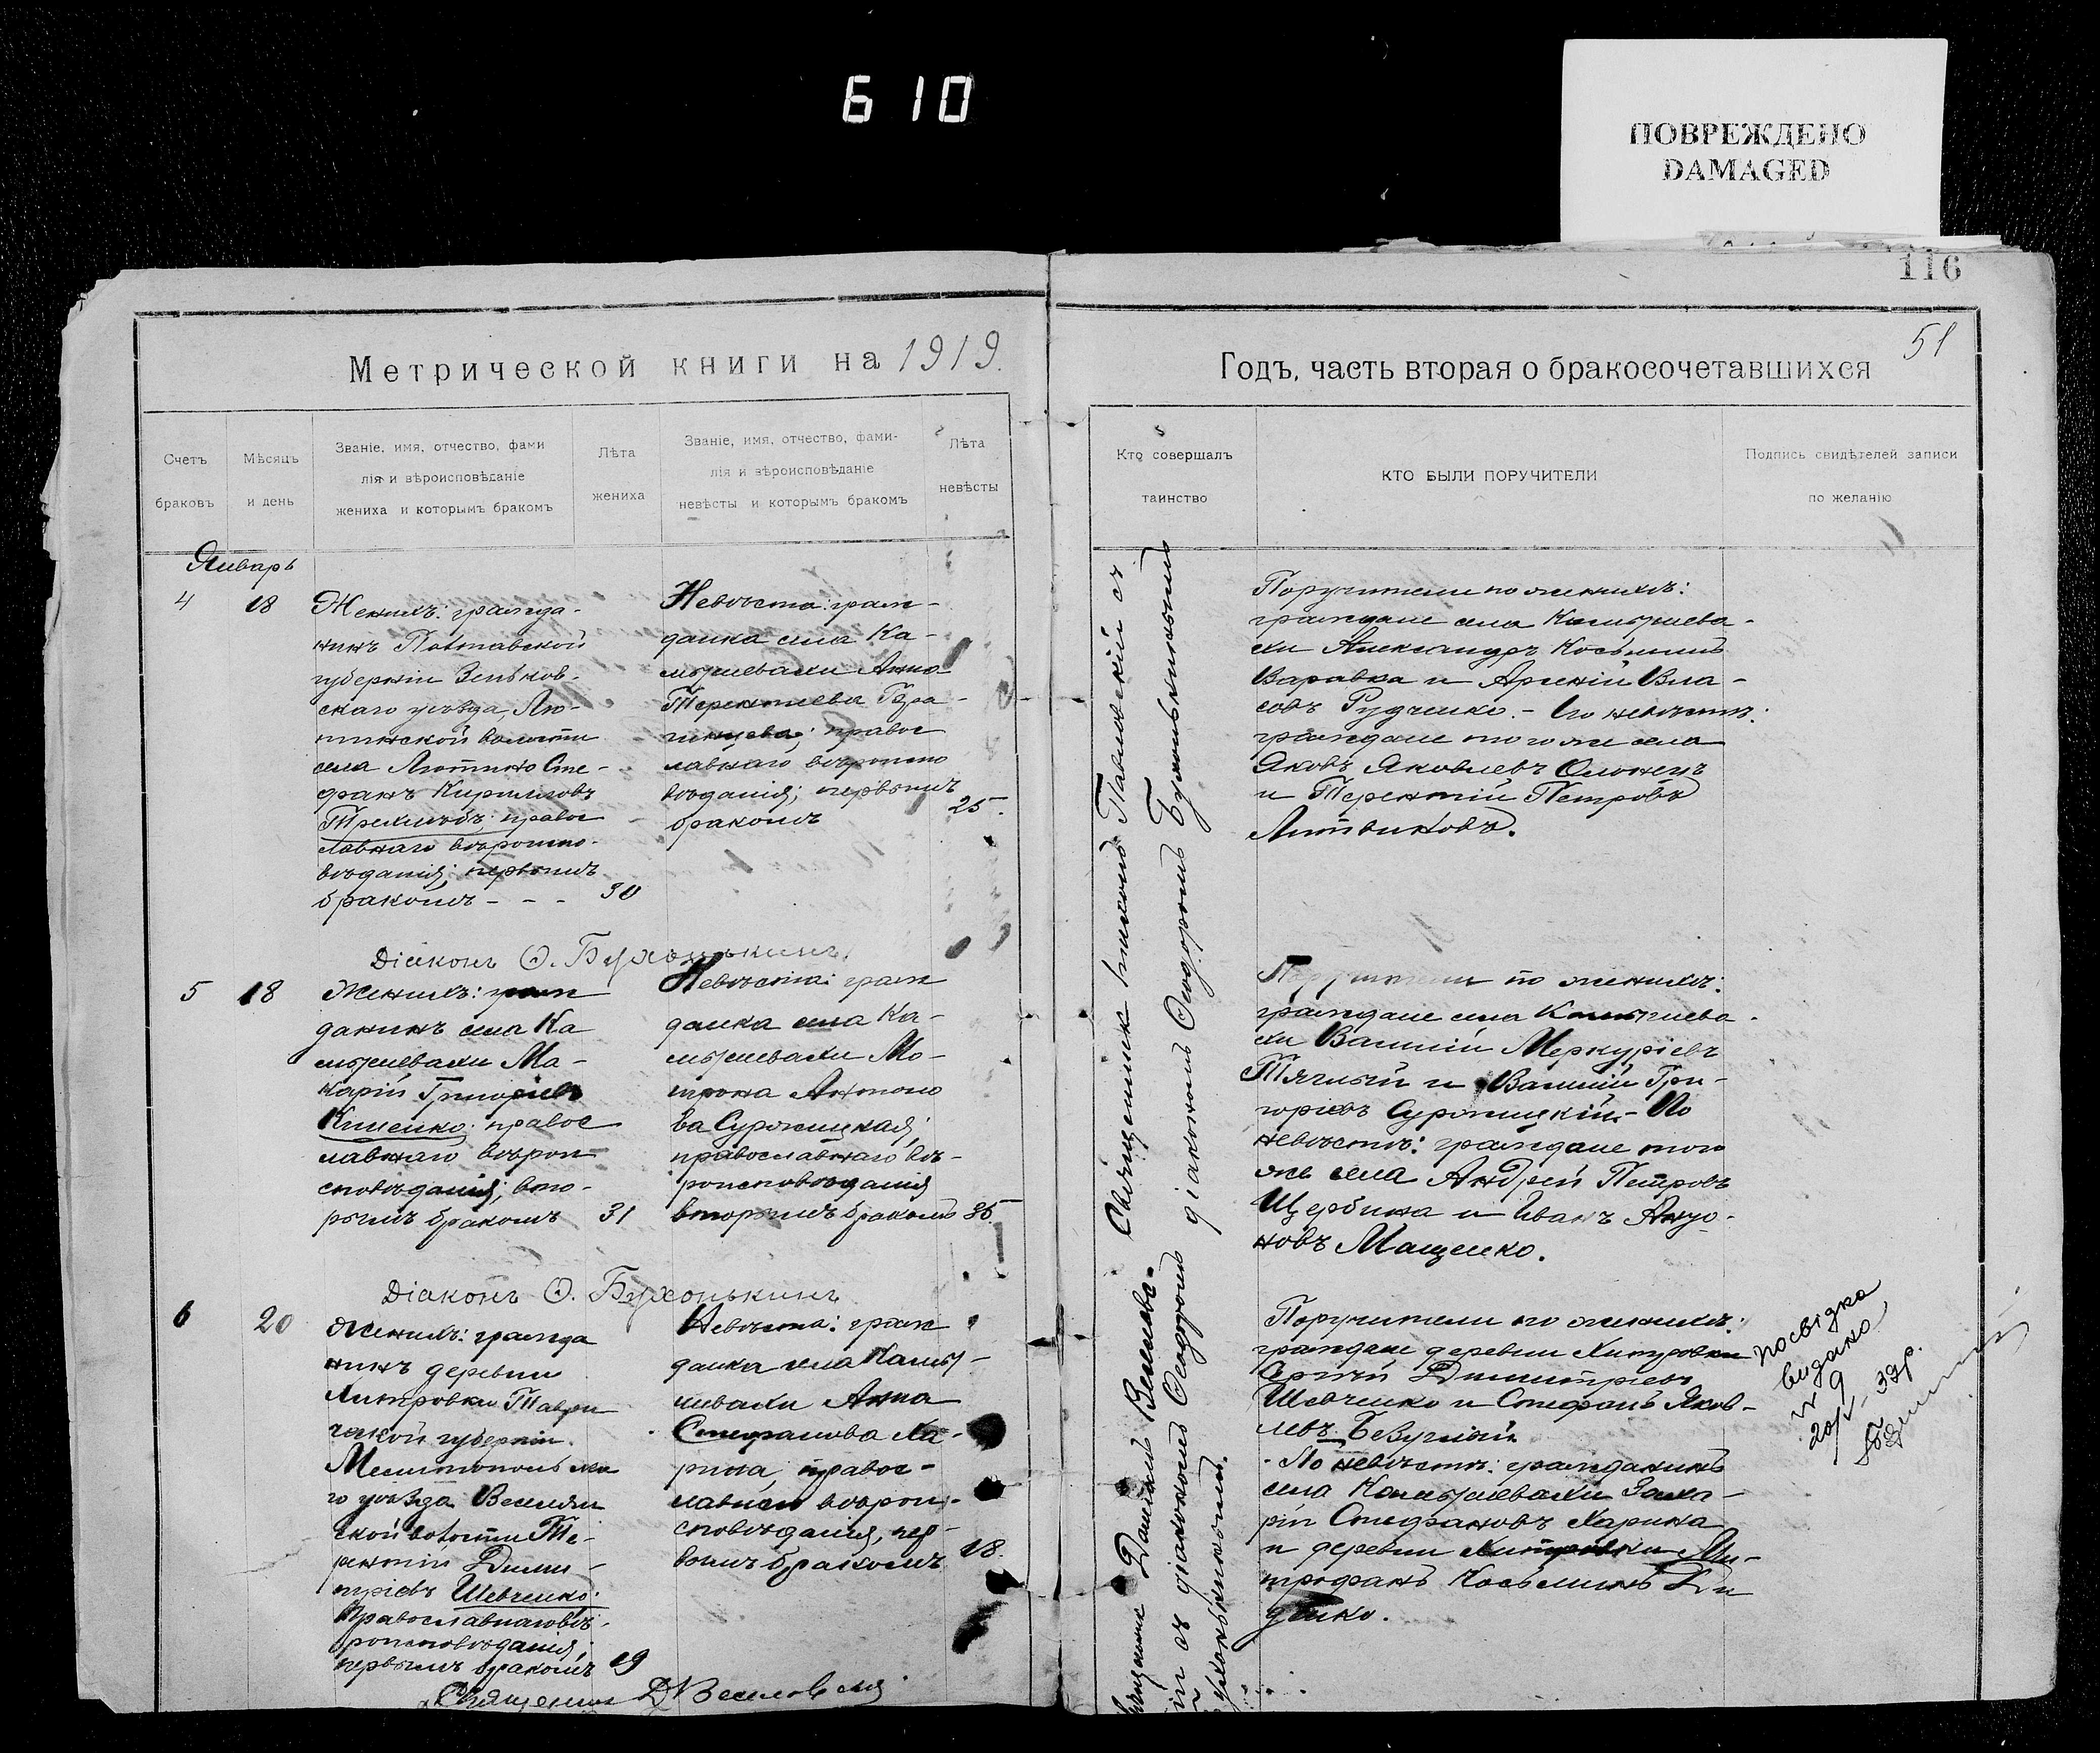 610
ПОВРЕЖДЕНО
DAMAGED
116
51
Метрической книги на 1919.
Годъ, часть вторая о бракосочетавшихся
Счетъ
браковъ
Мѣсяцъ
и день
Званіе, имя, отчество, фами
лія и вѣроисповѣданіе
жениха и которымъ бракомъ
Лѣта
жениха
Званіе, имя, отчество, фами-
лія и вѣроисповѣданіе
невѣсты и которымъ бракомъ
Лѣта
невѣсты
Кто совершалъ
таинство
КТО БЫЛИ ПОРУЧИТЕЛИ
Подпись свидѣтелей записи
по желанію
Январь
4
18
Женихъ: гражда-
нинъ Полтавской
губерніи Зеньков-
скаго уѣзда, Лю-
тинской волости
села Лютино Сте-
фанъ Кирилловъ
правос
лавнаго вѣроиспо-
вѣданія; первымъ
бракомъ - - -
30
Невѣста: граж-
данка села Ка-
Анна
Терентиева
правос
лавнаго вѣроиспо
вѣданія; первымъ
бракомъ
25.
Священник Павловскій съ
діакономъ Ѳеодоромъ Бухонькинымъ
Поручители по женихѣ:
граждане села
ки Александръ Косьминъ
Варавва и Арсеній Вла-
совъ Рудченко. - По невѣстѣ:
граждане того же села
Яковъ Яковлевъ
и Терентій Петровъ
Литвиновъ.
Діаконъ Ѳ. Бухонькинъ.
5
18
Женихъ: граж
данинъ села Ка
Ма-
карій Григоріевъ
правос
лавнаго вѣрои-
сповѣданія; вто-
рымъ бракомъ
31
Невѣста: граж
данка села Ка-
Мо-
трона Антоно
ва
православнаго вѣ-
роисповѣданія
вторымъ бракомъ
35.
Поручители по женихѣ:
граждане села
ки Василій Меркуріевъ
и Василій Гри-
горіевъ - По
невѣстѣ: граждане того
же села Андрей Петровъ
Щербина и Иванъ
новъ Мащенко.
Діаконъ Ѳ. Бухонькинъ
6
20
Женихъ: гражда
нинъ деревни
Хитровки Таври
ческой губерніи
Мелитопольска
го уѣзда Веселян
ской волости Те-
рентій Дими-
тріевъ Шевченко;
православнаго вѣ-
роисповѣданія;
первымъ бракомъ
19
Невѣста: граж
данка села
Анна
Стефанова Ха-
рина, правос-
лавнаго вѣрои-
сповѣданія, пер-
вымъ бракомъ
18.
Священник Даніилъ Веселовс-
кій съ діакономъ Ѳеодоромъ
Бухонькинымъ.
Поручители по женихѣ:
граждане деревни Хитровки
Сергѣй Димитріевъ
Шевченко и Стефанъ Яков-
левъ
По невѣстѣ: гражданинъ
села Заха-
рій Стефановъ Харина
и деревни Хитровки Ми-
трофанъ Косьминъ Ди
денко.
посвідка
видано
№ 9
Священник Д Веселовскій